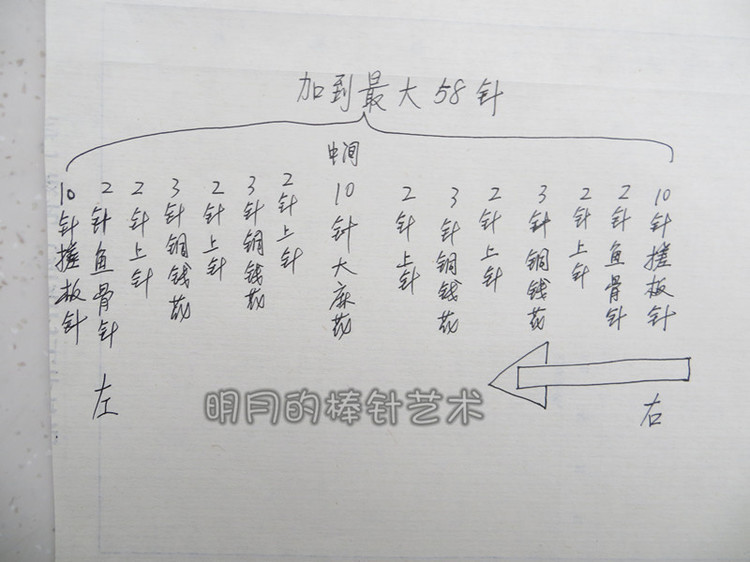 加到最大58针
中间
10针搓板针
2针鱼骨针
2针上针
3针铜钱花
2针上针
3针铜钱花
2针上针
10针大麻花
2针上针
3针铜钱花
2针上针
3针铜钱花
2针上针
2针鱼骨针
10针搓板针
左
右
明月的棒针艺术